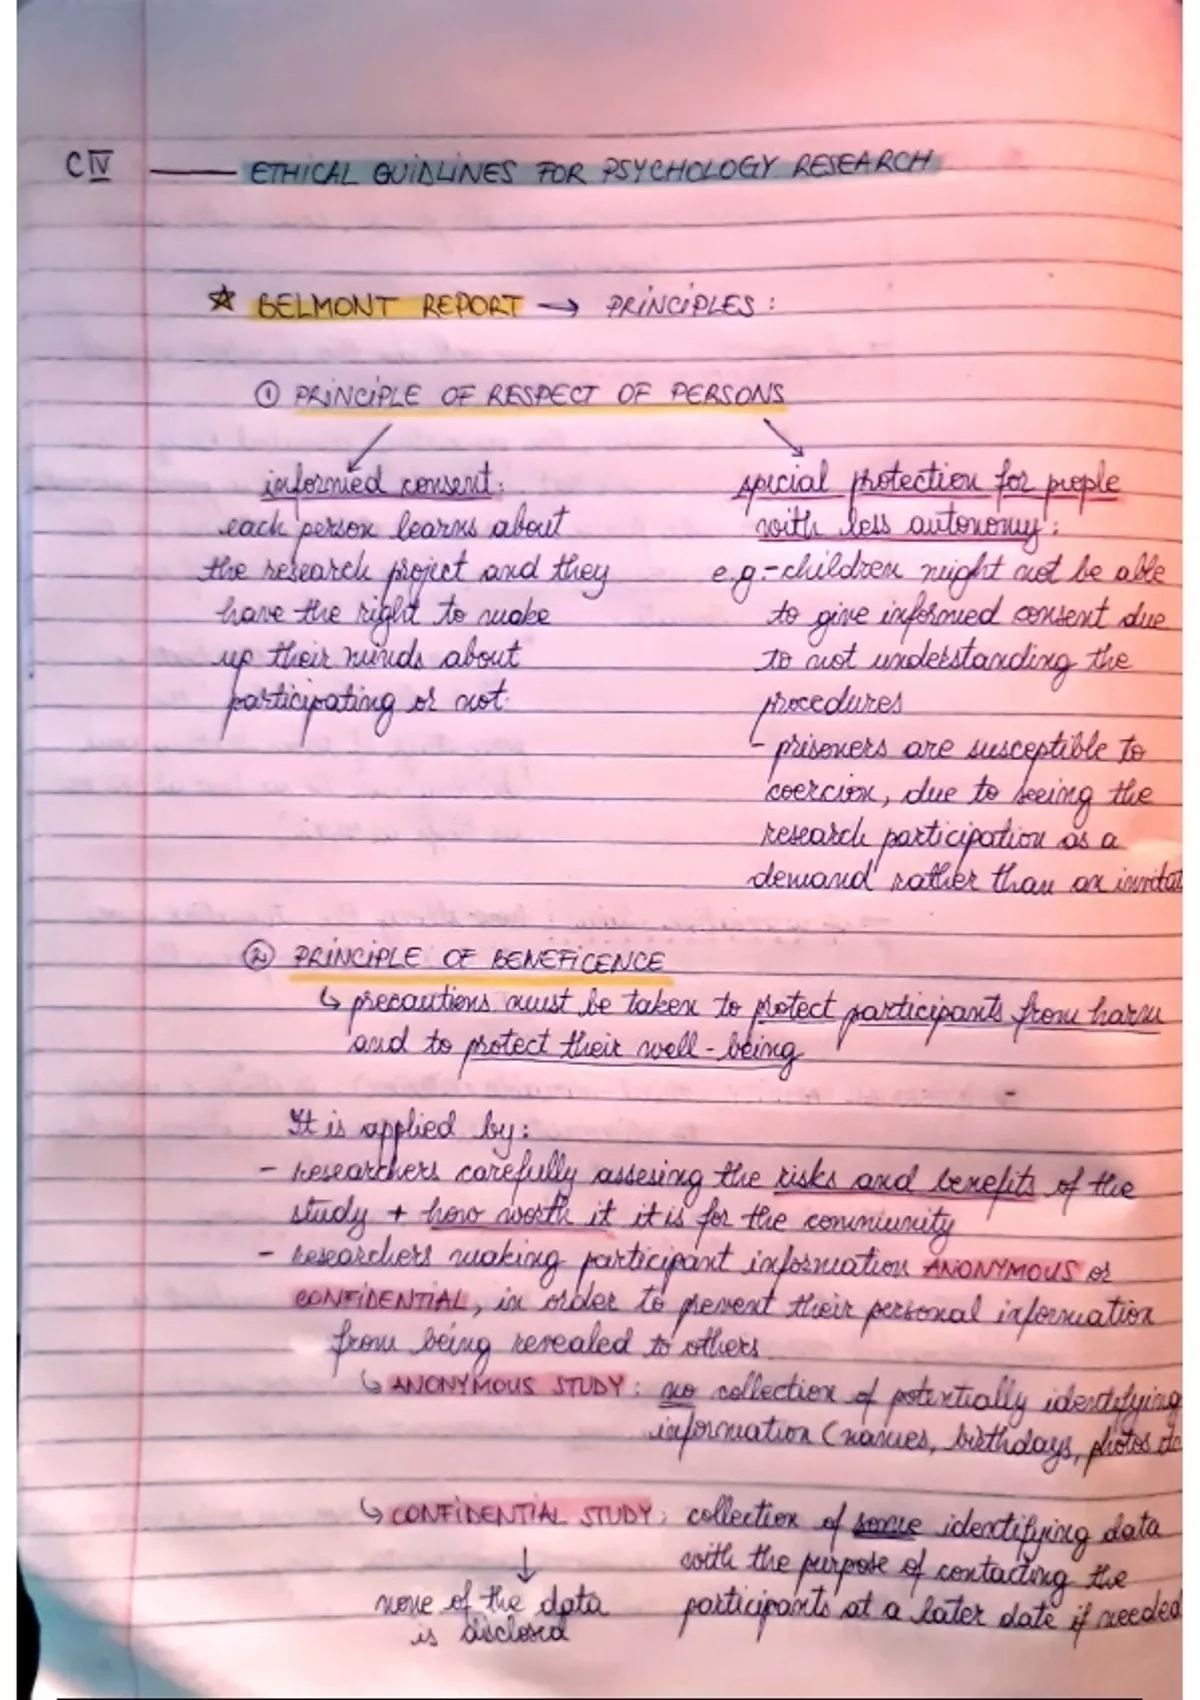 CIV — ETHICAL GUIDLINES FOR PSYCHOLOGY RESEARCH
☆ BELMONT REPORT → PRINCIPLES :
① PRINCIPLE OF RESPECT OF PERSONS
informed consent:
each person learns about
the research project and they
have the right to make
up their minds about
participating or not.
special protection for people
with less autonomy:
e.g.- children might not be able
to give informed consent due
to not understanding the
procedures
- prisoners are susceptible to
coercion, due to seeing the
research participation as a
demand rather than an invitat
② PRINCIPLE OF BENEFICENCE
↳ precautions must be taken to protect participants from harm
and to protect their well-being
It is applied by:
- researchers carefully assesing the risks and benefits of the
study + how worth it it is for the community
- researchers making participant information ANONYMOUS or
CONFIDENTIAL, in order to prevent their personal information
from being revealed to others
↳ ANONYMOUS STUDY : no collection of potentially identifying
information (names, birthdays, photos etc
↳ CONFIDENTIAL STUDY: collection of some identifying data
with the purpose of contacting the
participants at a later date if needed
↓
none of the data
is disclosed